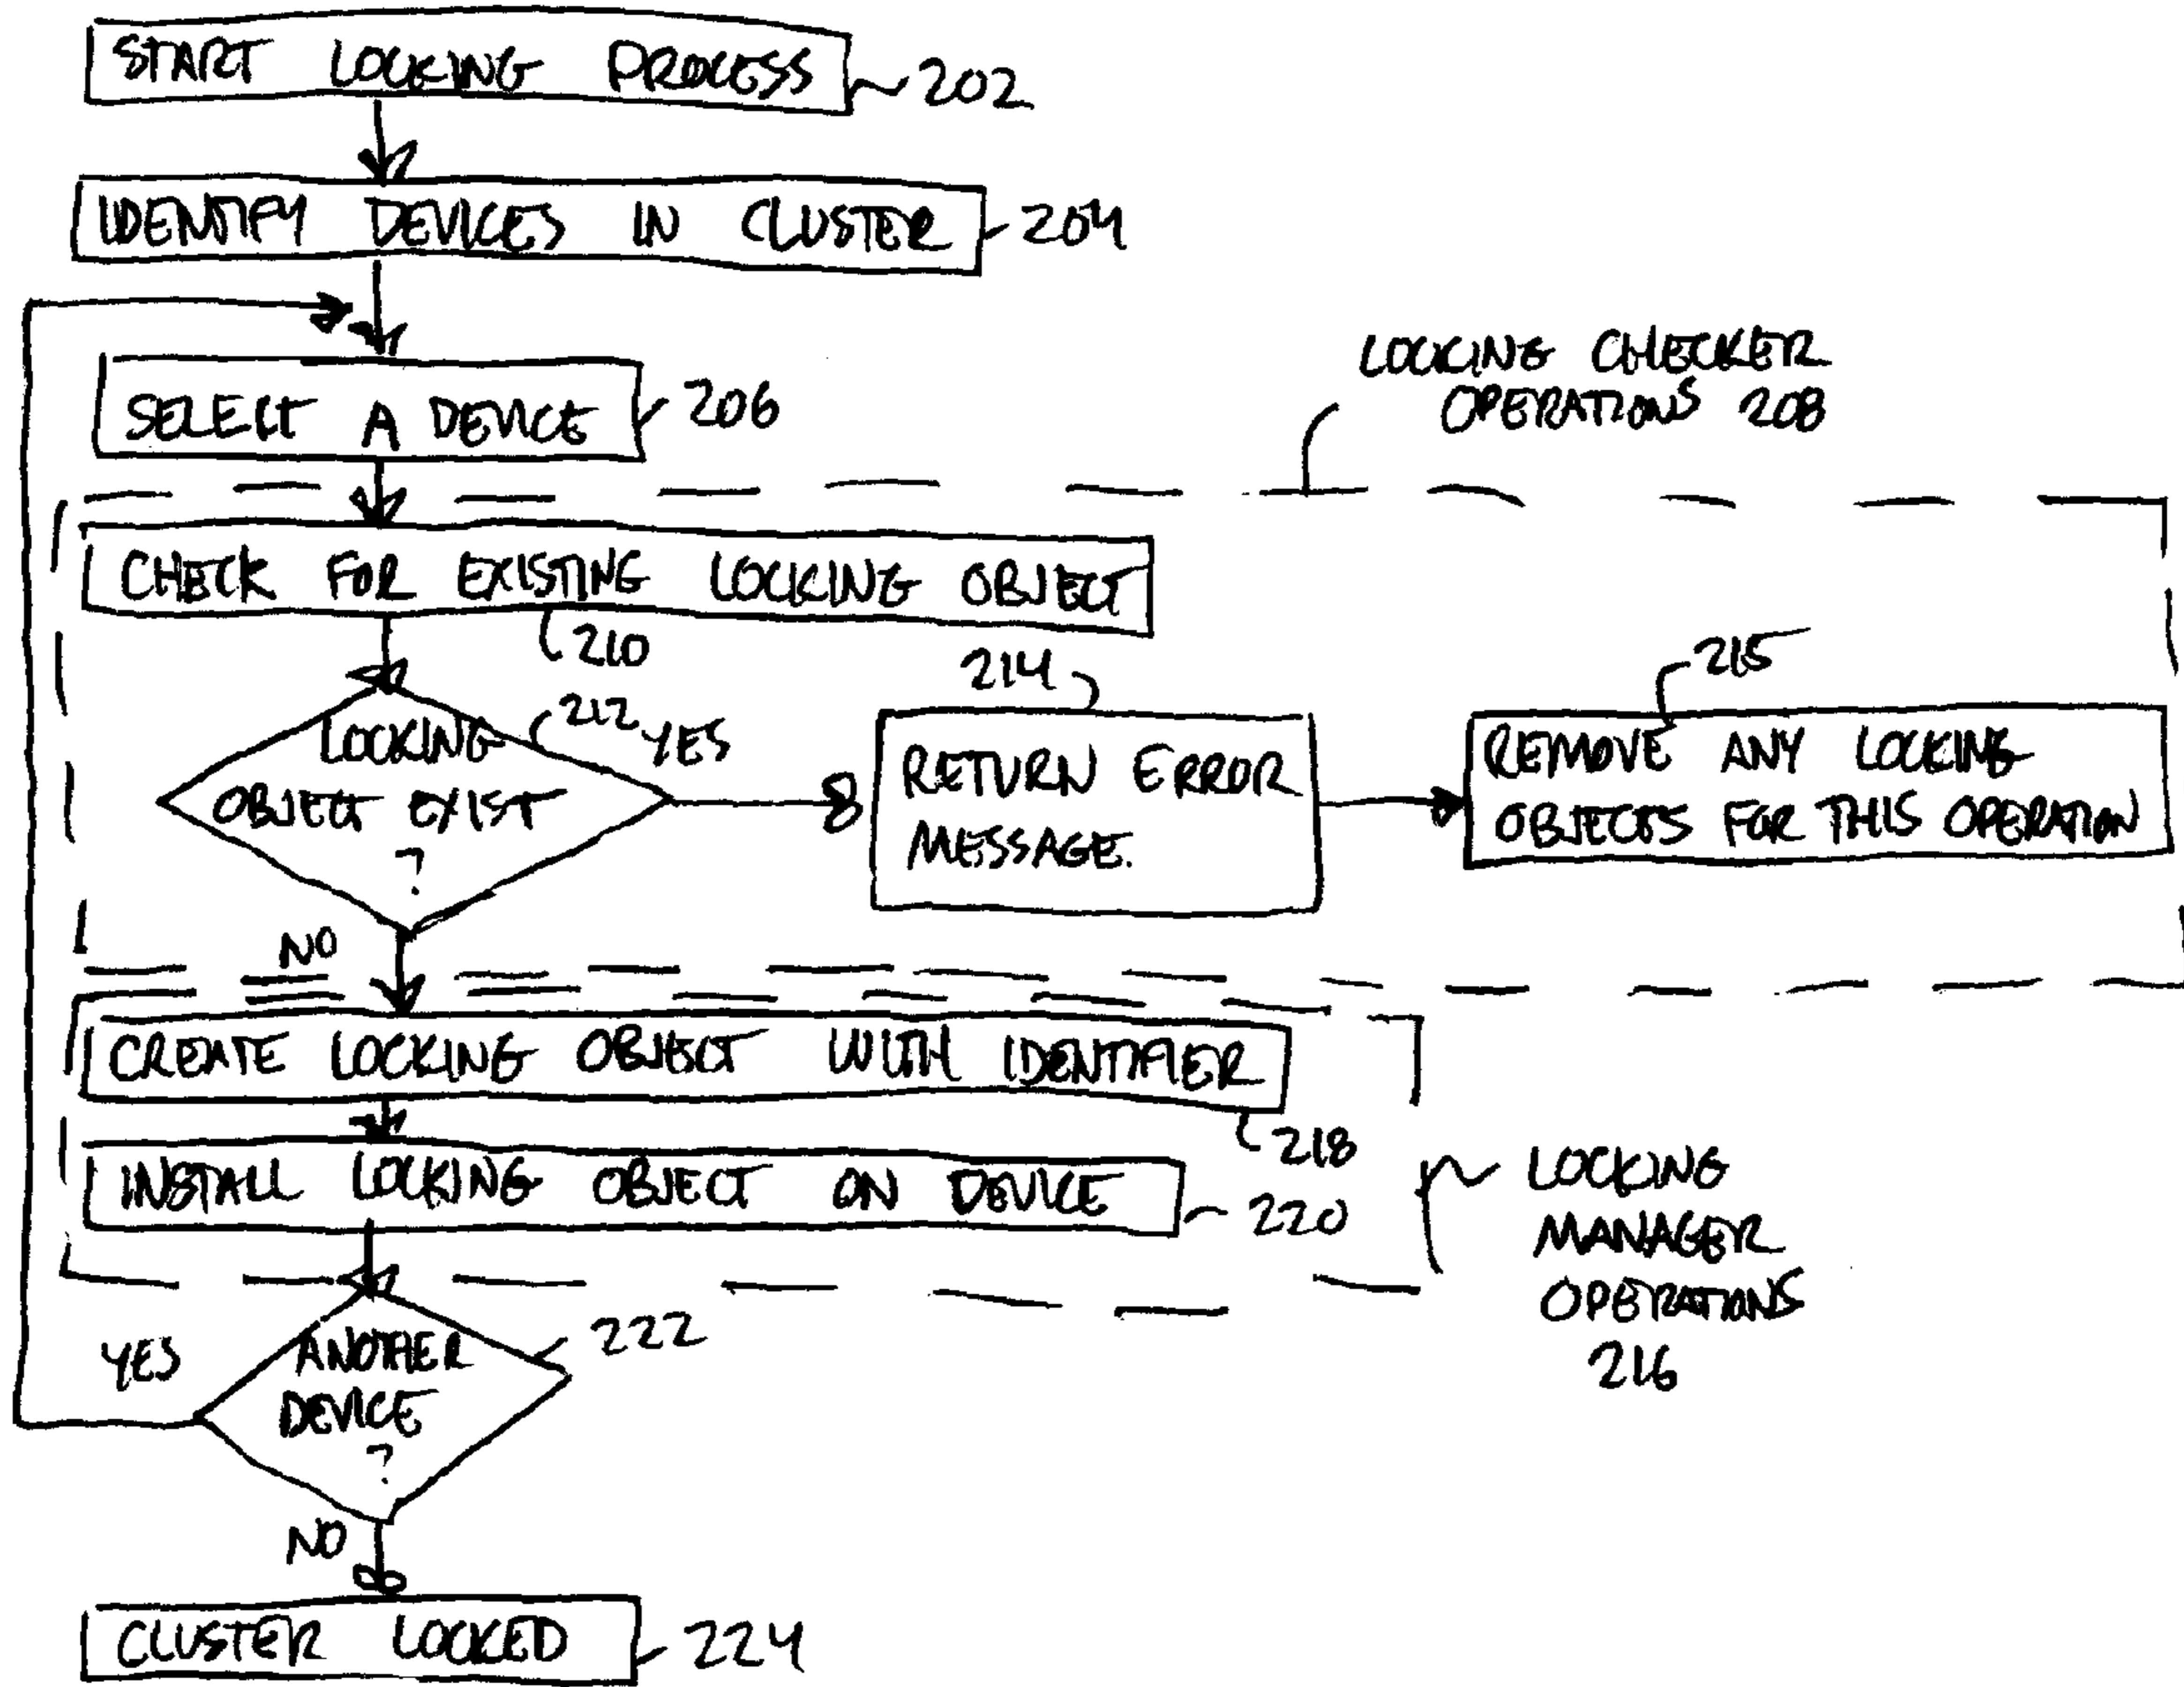 START LOCKING PROCESS 202
IDENTIFY DEVICES IN CLUSTER 204
SELECT A DEVICE 206
LOCKING CHECKER
OPERATIONS 208
CHECK FOR EXISTING LOCKING OBJECT
210
212
LOCKING
OBJECT EXIST
?
YES
214
RETURN ERROR
MESSAGE.
215
REMOVE ANY LOCKING
OBJECTS FOR THIS OPERATION
NO
CREATE LOCKING OBJECT WITH IDENTIFIER
218
INSTALL LOCKING OBJECT ON DEVICE 220
LOCKING
MANAGER
OPERATIONS
216
222
YES
ANOTHER
DEVICE
?
NO
CLUSTER LOCKED 224